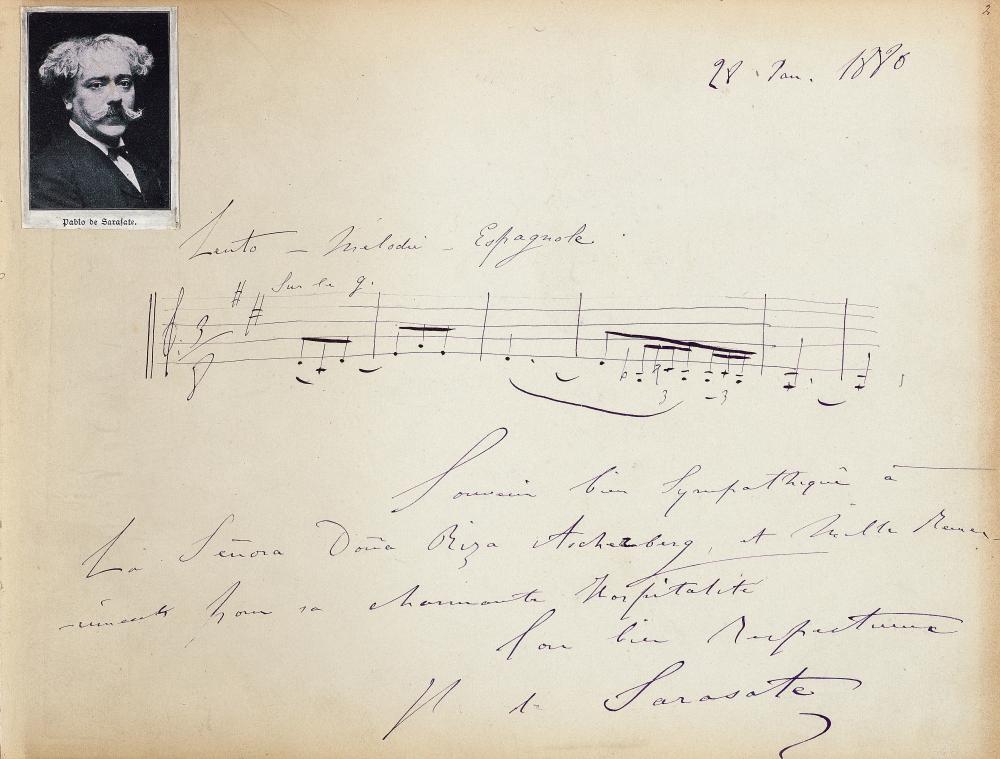 2
28 Jan. 1886
Pablo de Sarasate.
Lento - Mélodie - Espagnole.
Sur le g.
3
8
3 3
Souvenir bien Sympathique à
La Señora Doña Riza Ascherberg, et Mille Remer-
-ciments pour sa charmante Hospitalité
Son bien Respectueux
P de Sarasate